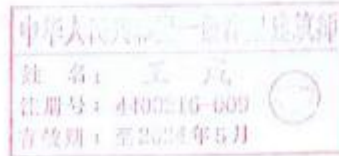 中华人民共和国一级注册建筑师
姓 名：王
注册号：4400216-009
有效期：至2024年5月